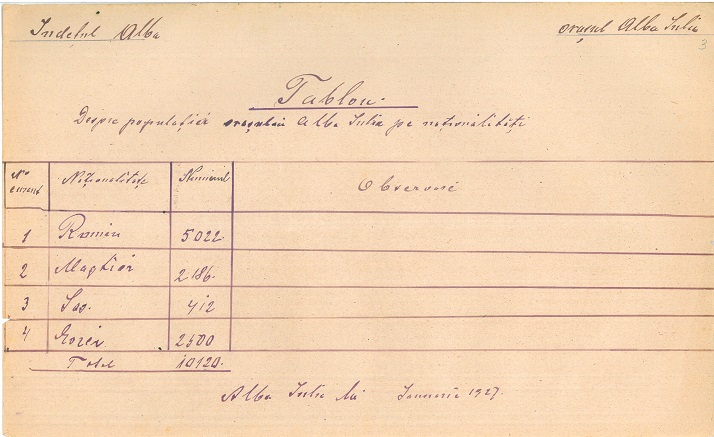 Judetul Alba
orașul Alba Iulia
3
Tablou
Despre populația orașului Alba Iulia pe naționalități
No curent Naționalitate Numărul Observări
1 Român 5022
2 Maghiar 2186.
3 Sas. 412
4 Evrei 2500
Total 10120.
Alba Iulia la Ianuarie 1927.